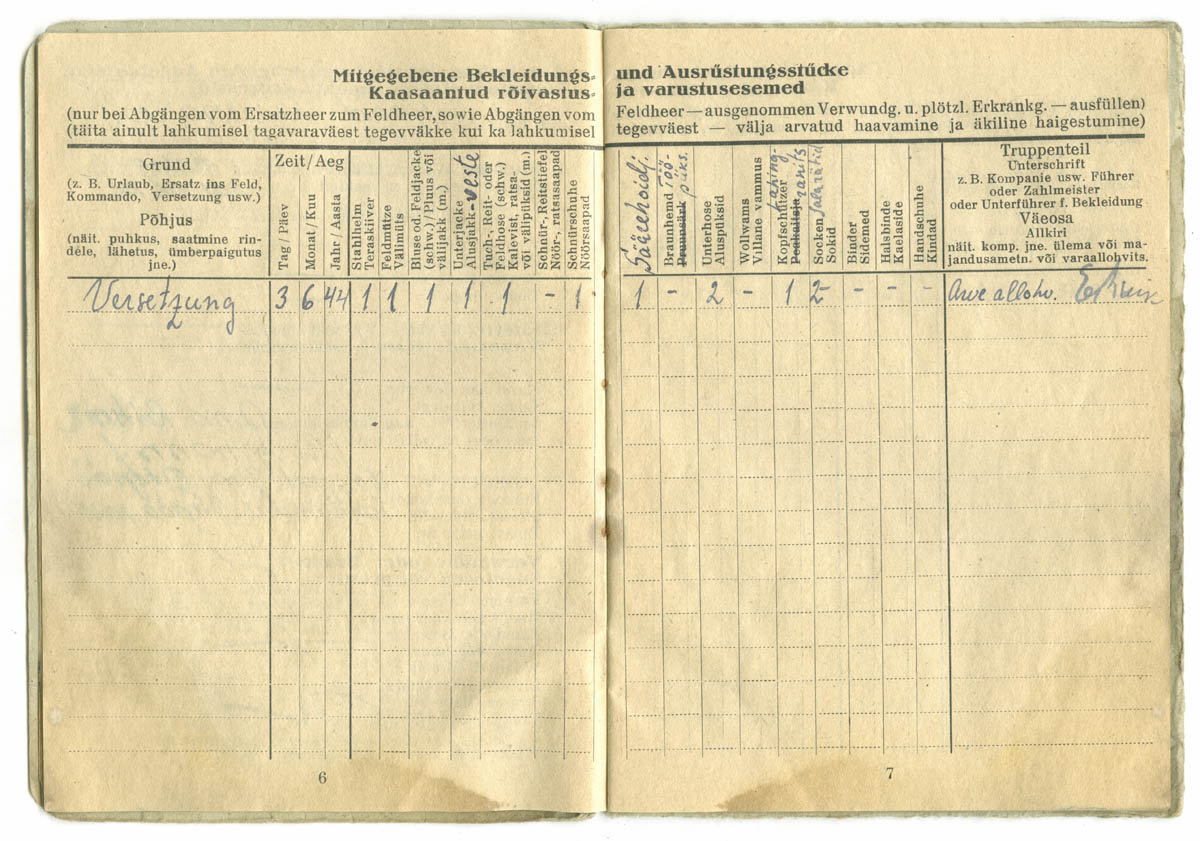 Mitgegebene Bekleidungs-
Kaasaantud rõivastus-
(nur bei Abgängen vom Ersatzheer zum Feldheer, sowie Abgängen vom
(täita ainult lahkumisel tagavaraväest tegevväkke kui ka lahkumisel
Grund
(z. B. Urlaub, Ersatz ins Feld,
Kommando, Versetzung usw.)
Põhjus
(näit. puhkus, saatmine rin-
dele, lähetus, ümberpaigutus
jne.)
Zeit / Aeg
Tag / Päev
Monat / Kuu
Jahr / Aasta
Stahlhelm
Teraskiiver
Feldmütze
Välimüts
Bluse od. Feldjacke
(schw.) / Pluus või
välijakk (m.)
Unterjacke
Alusjakk-veste
Tuch-, Reit- oder
Feldhose (schw.)
Kalevist, ratsa-
või välipüksid (m.)
Schnür-, Reitstiefel
Nöör-, ratsasaapad
Schnürschuhe
Nöörsaapad
Versetzung 3 6 44 1 1 1 1 1 - 1
6
und Ausrüstungsstücke
ja varustusesemed
Feldheer — ausgenommen Verwundg. u. plötzl. Erkrankg. — ausfüllen)
tegevväest — välja arvatud haavamine ja äkiline haigestumine)
Säärehoidj.
Braunhemd töö-
Pruunsärk püks.
Unterhose
Aluspüksid
Wollwams
Villane vammus
Kopfschützer
Peakaitsja
Socken
Sokid
Binder
Sidemed
Halsbinde
Kaelaside
Handschuhe
Kindad
Truppenteil
Unterschrift
z. B. Kompanie usw. Führer
oder Zahlmeister
oder Unterführer f. Bekleidung
Väeosa
Allkiri
näit. komp. jne. ülema või ma-
jandusametn. või varaallohvits.
1 - 2 - 1 2 - - - allohv.
7